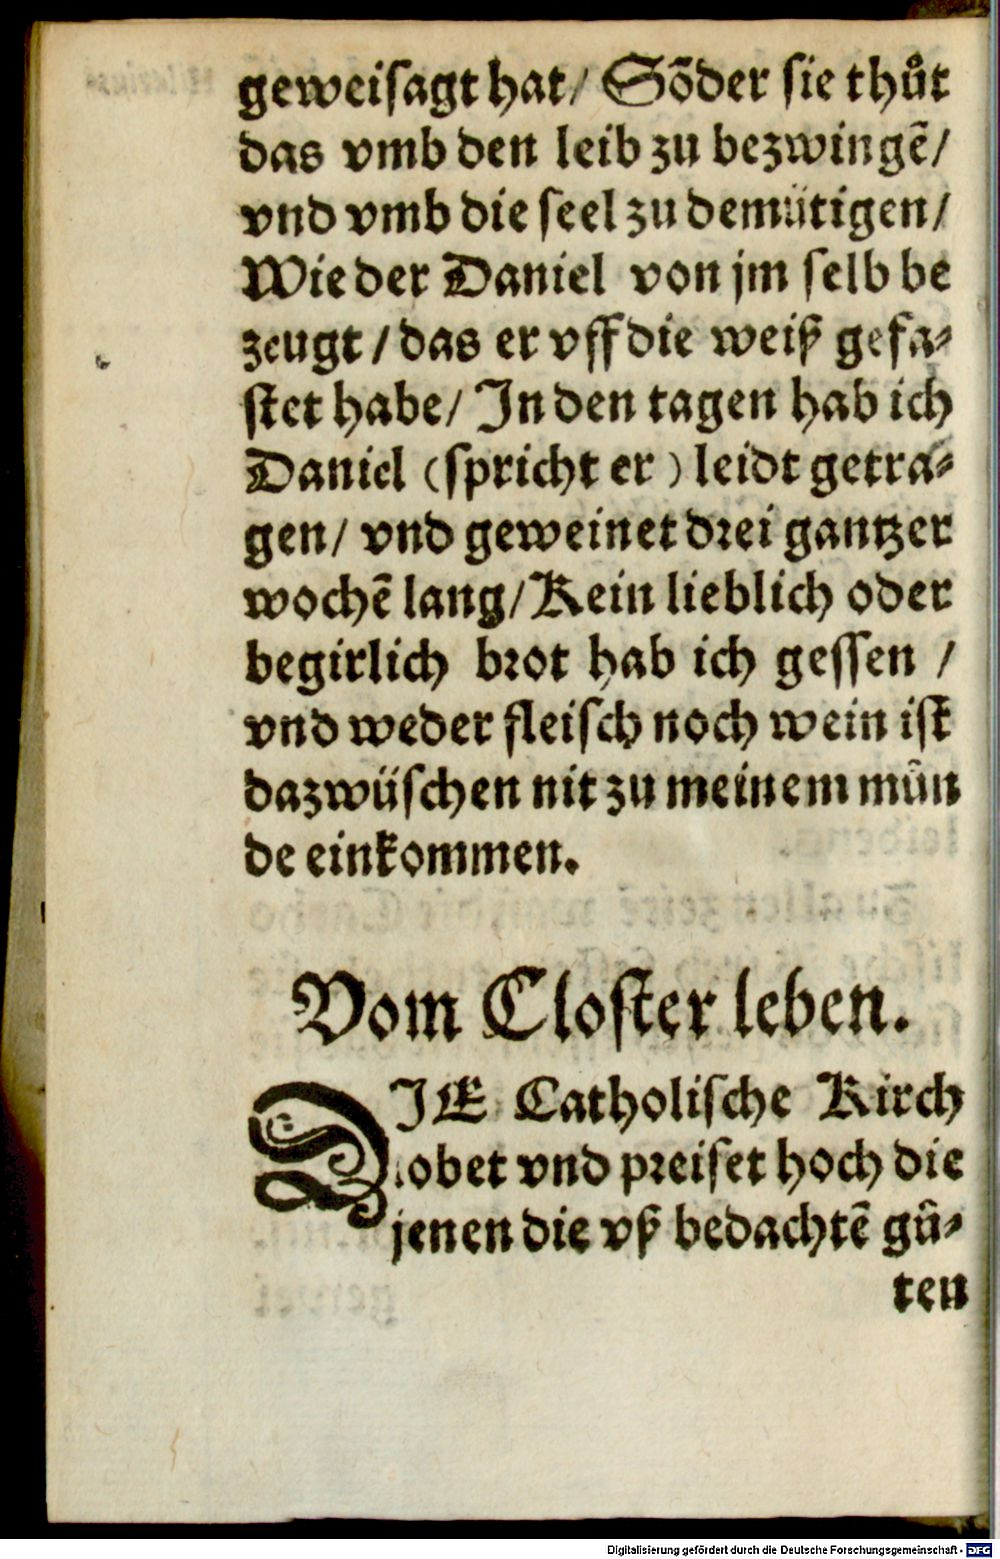 geweiſagt hat / Sōder ſie thůt
das vmb den leib zu bezwingē /
vnd vmb die ſeel zu demütigen /
Wie der Daniel von jm ſelb be
zeugt / das er vff die weiß gefa⸗
ſtet habe / In den tagen hab ich
Daniel (ſpricht er) leidt getra⸗
gen / vnd geweinet drei gantzer
wochē lang / Kein lieblich oder
begirlich brot hab ich geſſen /
vnd weder fleiſch noch wein iſt
dazwüſchen nit zu meinem můn
de einkommen.
Vom Cloſter leben.
DIE Catholiſche Kirch
lobet vnd preiſet hoch die
jenen die vß bedachtē gů⸗
ten
Digitalisierung gefördert durch die Deutsche Forschungsgemeinschaft - DFG